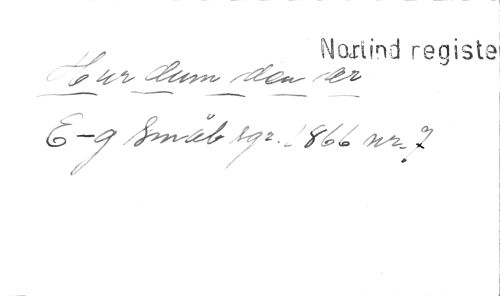 Norlind registe
Hur dum den är
E-g Småb sgr. 1866 nr. 7